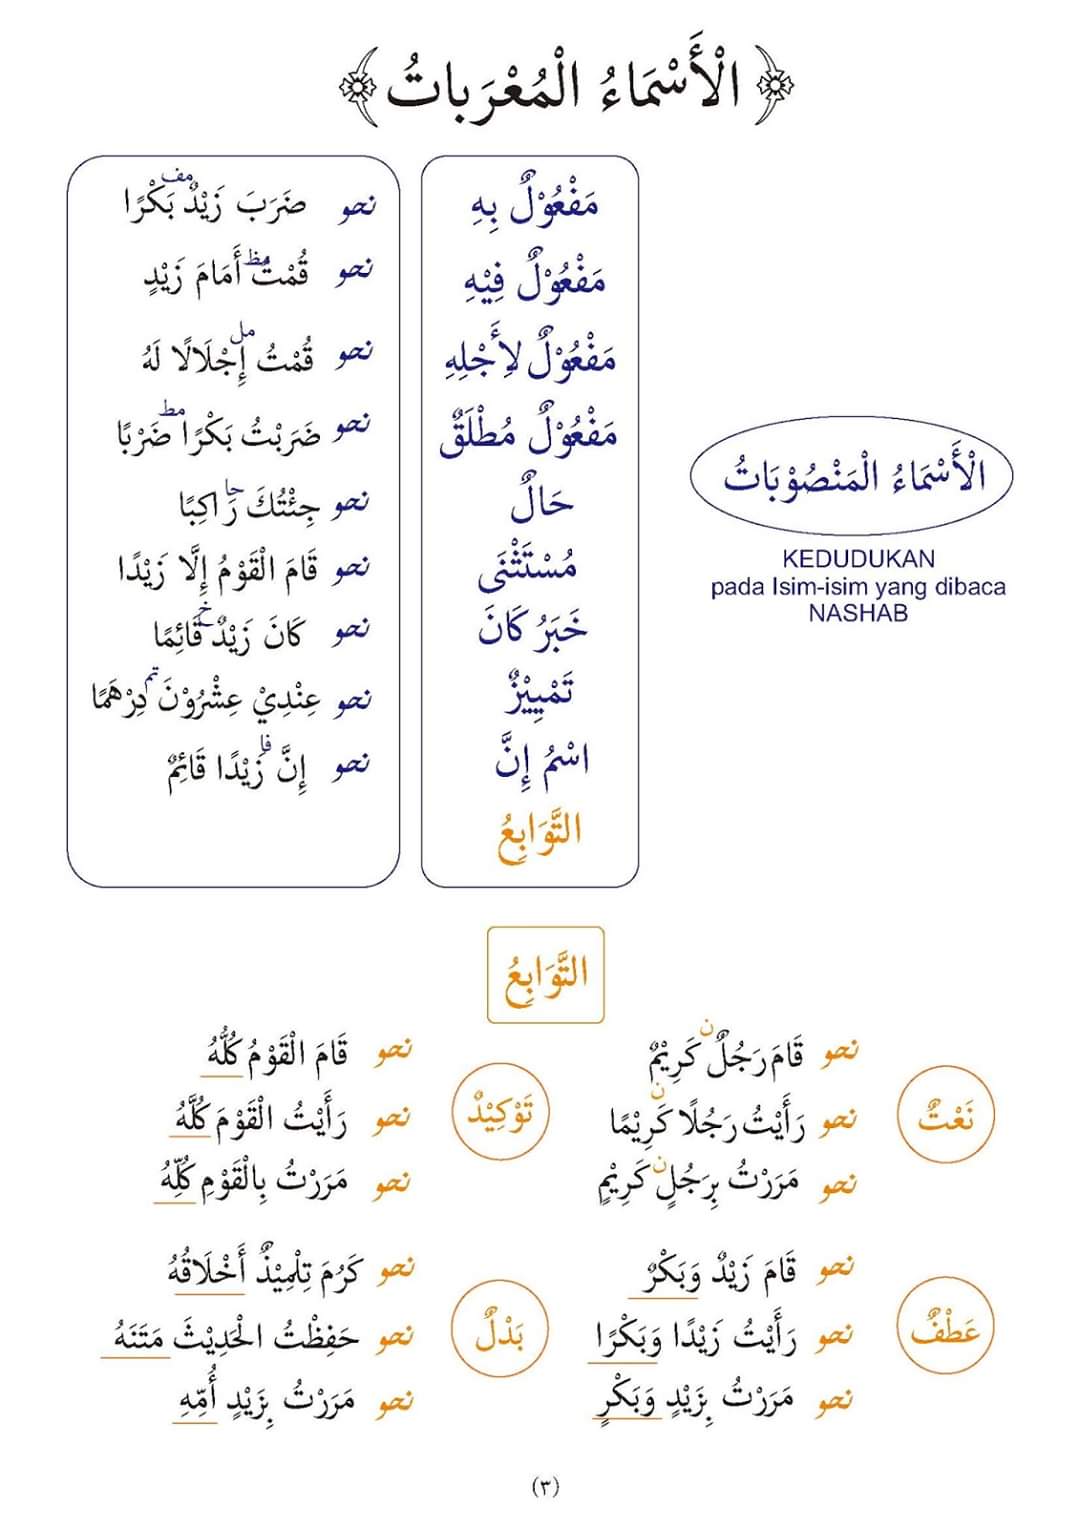 الْأَسْمَاءُ الْمُعْرَبَاتُ
الْأَسْمَاءُ الْمَنْصُوْبَاتُ
KEDUDUKAN
pada Isim-isim yang dibaca
NASHAB
مَفْعُوْلٌ بِهِ
مَفْعُوْلٌ فِيْهِ
مَفْعُوْلٌ لِأَجْلِهِ
مَفْعُوْلٌ مُطْلَقٌ
حَالٌ
مُسْتَثْنَى
خَبَرُ كَانَ
تَمْيِيْزٌ
اسْمُ إِنَّ
التَّوَابِعُ
نحو ضَرَبَ زَيْدٌ مف بَكْرًا
نحو قُمْتُ مظ أَمَامَ زَيْدٍ
نحو قُمْتُ مل إِجْلَالًا لَهُ
نحو ضَرَبْتُ بَكْرًا مط ضَرْبًا
نحو جِئْتُكَ حا رَاكِبًا
نحو قَامَ الْقَوْمُ إِلَّا زَيْدًا
نحو كَانَ زَيْدٌ خ قَائِمًا
نحو عِنْدِيْ عِشْرُوْنَ تم دِرْهَمًا
نحو إِنَّ فا زَيْدًا قَائِمٌ
التَّوَابِعُ
نَعْتٌ
نحو قَامَ رَجُلٌ ن كَرِيْمٌ
نحو رَأَيْتُ رَجُلًا ن كَرِيْمًا
نحو مَرَرْتُ بِرَجُلٍ ن كَرِيْمٍ
تَوْكِيْدٌ
نحو قَامَ الْقَوْمُ كُلُّهُ
نحو رَأَيْتُ الْقَوْمَ كُلَّهُ
نحو مَرَرْتُ بِالْقَوْمِ كُلِّهِ
عَطْفٌ
نحو قَامَ زَيْدٌ وَبَكْرٌ
نحو رَأَيْتُ زَيْدًا وَبَكْرًا
نحو مَرَرْتُ بِزَيْدٍ وَبَكْرٍ
بَدْلٌ
نحو كَرُمَ تِلْمِيْذٌ أَخْلَاقُهُ
نحو حَفِظْتُ الْحَدِيْثَ مَتَنَهُ
نحو مَرَرْتُ بِزَيْدٍ أُمِّهِ
(٣)